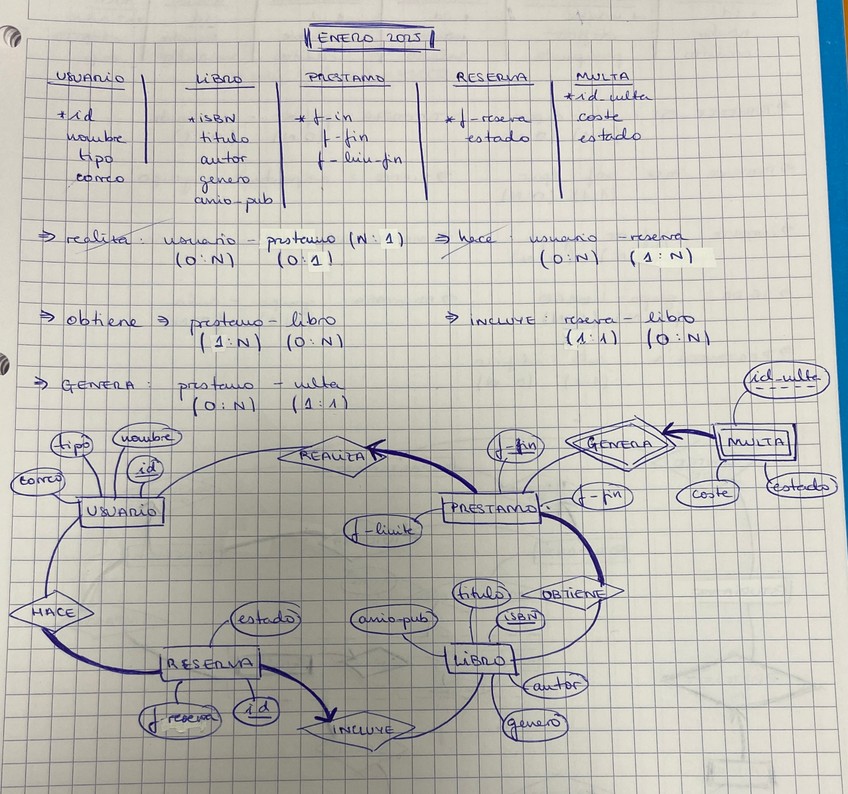 ENERO 2025
USUARIO LIBRO PRESTAMO RESERVA MULTA
*id *ISBN * f-in *f-reserva *id_multa
nombre titulo f-fin estado coste
tipo autor f-lim-fin estado
correo genero
anio-pub
⇒ realiza: usuario - prestamo (N:1) ⇒ hace: usuario - reserva
(0:N) (0:1) (0:N) (1:N)
⇒ obtiene ⇒ prestamo - libro ⇒ INCLUYE: reserva - libro
(1:N) (0:N) (1:1) (0:N)
⇒ GENERA: prestamo - multa
(0:N) (1:1)
id_multa
tipo nombre
REALIZA
f-fin
GENERA
MULTA
correo
id
USUARIO
PRESTAMO
f-fin
coste
estado
f-limite
HACE
titulo
OBTIENE
estado
anio-pub
ISBN
RESERVA
LIBRO
autor
f reserva
id
INCLUYE
genero